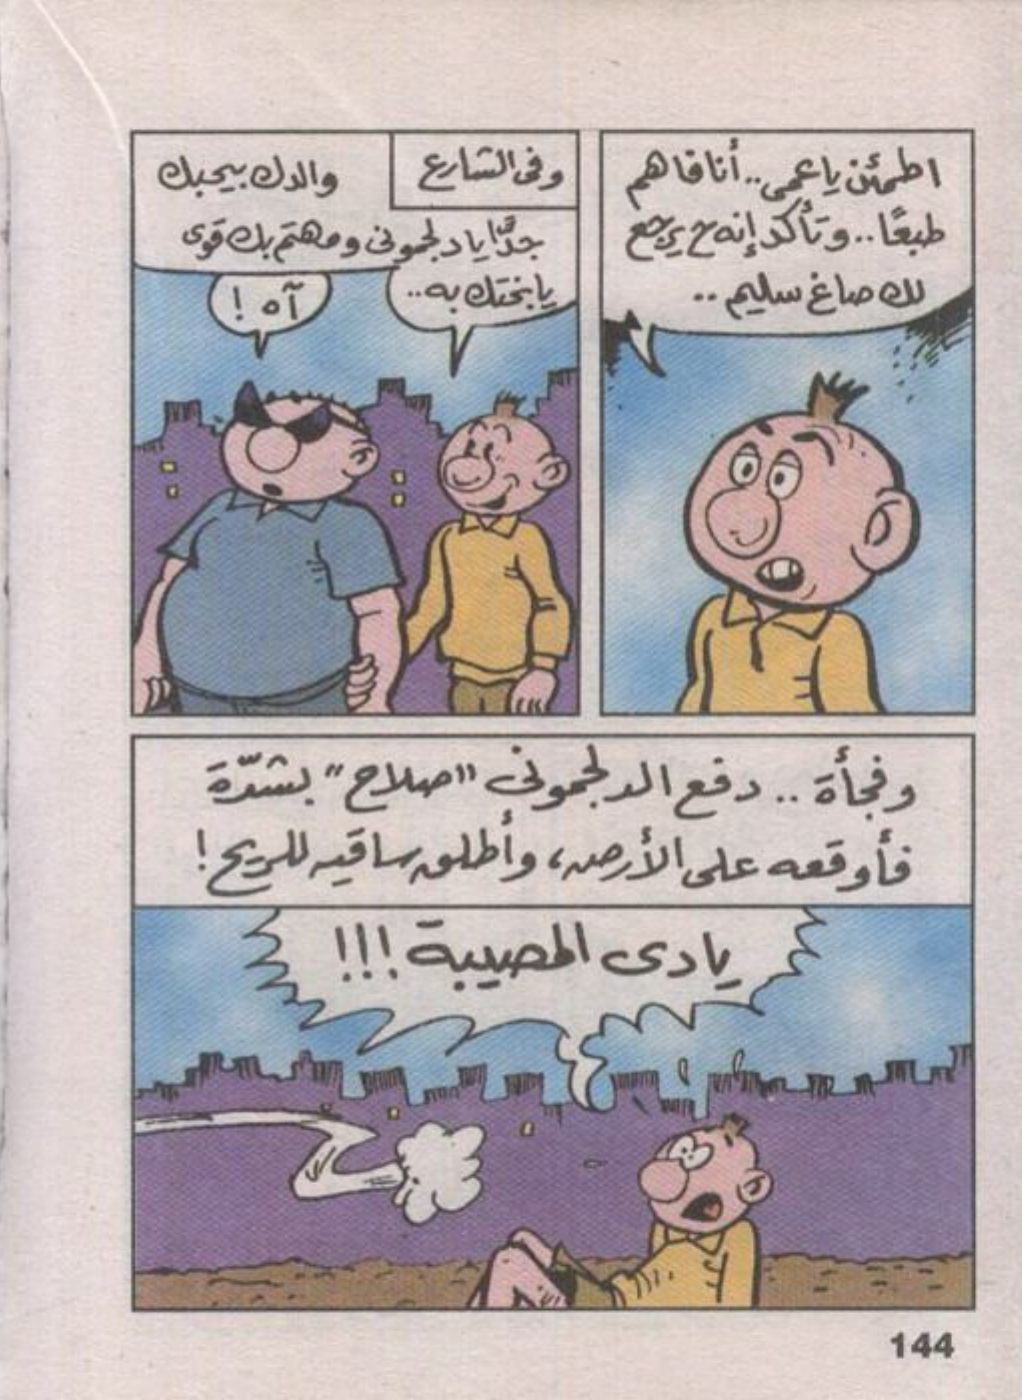 اطمئن ياعمى.. أنا فاهم
طبعًا.. وتأكد إنه ح يرجع
لك صاغ سليم ..
وفى الشارع
والدك بيحبك
جدًّا يا دلجمونى ومهتم بك قوى
يابختك به..
آه !
وفجأة .. دفع الدلجمونى "صلاح" بشدّة
فأوقعه على الأرض، وأطلق ساقيه للريح !
يادى المصيبة !!!
144